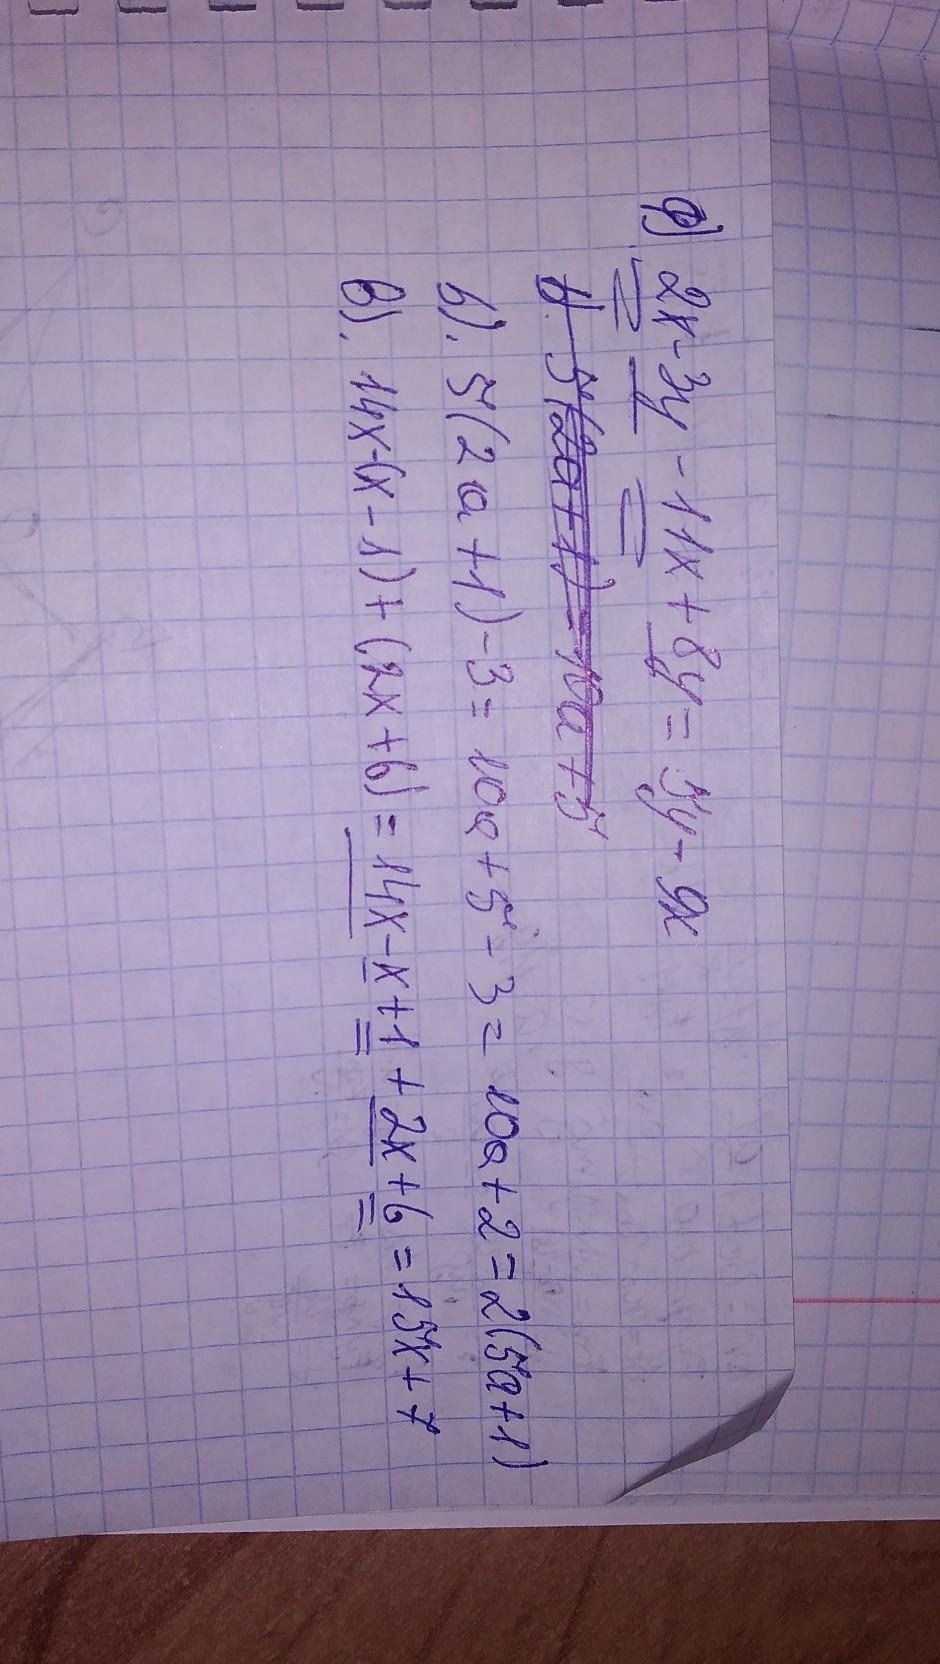 а) 2x-3y-11x+8y=5y-9x
б). 5(2a+1)=10a+5
б). 5(2a+1)-3=10a+5-3=10a+2=2(5a+1)
в). 14x-(x-1)+(2x+6)=14x-x+1+2x+6=15x+7